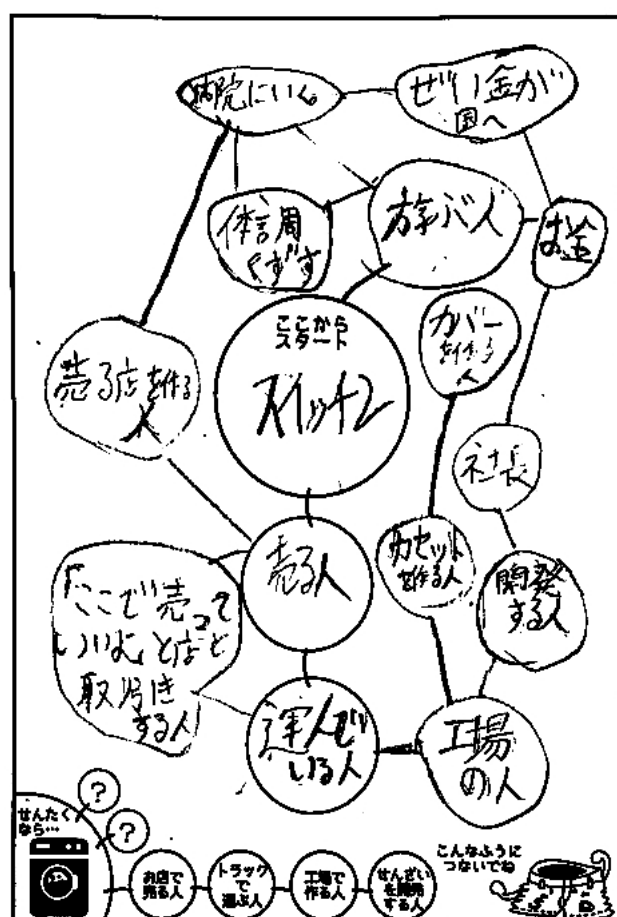 病院にいく
ぜい金が
国へ
体調
くずす
遊ぶ人
お金
ここから
スタート
スイッチ2
カバー
を作る
人
売る店を作る
人
社長
売る人
カセット
を作る人
開発
する人
「ここで売って
いいよ」と店と
取引き
する人
運んで
いる人
工場
の人
せんたく
なら…
?
?
お店で
売る人
トラック
で
運ぶ人
工場で
作る人
せんざい
を開発
する人
こんなふうに
つないでね